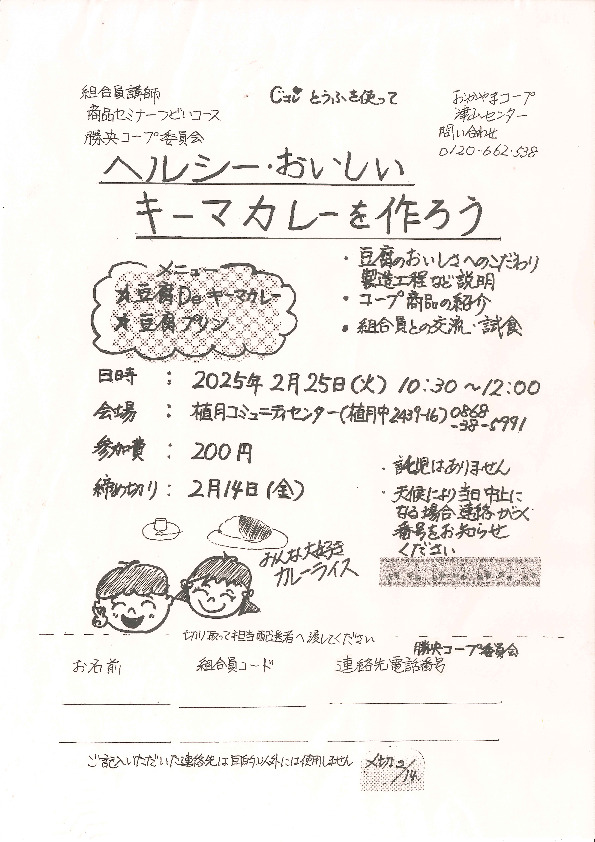 組合員講師
商品セミナーつどいコース
勝央コープ委員会
とうふを使って
おかやまコープ
津山センター
問い合わせ
0120-662-538
ヘルシー・おいしい
キーマカレーを作ろう
メニュー
★豆腐Deキーマカレー
★豆腐プリン
・豆腐のおいしさへのこだわり
製造工程など説明
・コープ商品の紹介
・組合員との交流・試食
日時 : 2025年2月25日(火) 10:30~12:00
会場 : 植月コミュニティセンター(植月中2439-16) 0868-38-5991
参加費 : 200円
締め切り : 2月14日(金)
・託児はありません
・天候により当日中止に
なる場合、連絡がつく
番号をお知らせ
ください
みんな大好き
カレーライス
切り取って担当配達者へ渡してください
勝央コープ委員会
お名前 組合員コード 連絡先電話番号
ご記入いただいた連絡先は目的以外には使用しません
〆切2/14